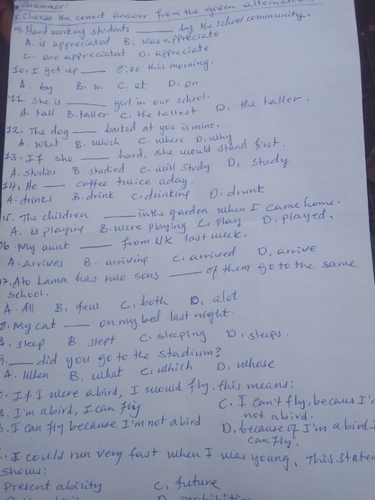 Grammar:
Choose the correct answer from the given
9. Hard working students _____ by the school community.
A. is appreciated B. was appreciate
C. are appreciated D. appreciate
10. I get up ____ 8:00 this morning.
A. by B. in C. at D. on
11. She is _____ girl in our school.
A. tall B. taller C. the tallest D. the taller.
12. The dog ____ barked at you is mine.
A. what B. which C. where D. why
13. If she ____ hard, she would stand first.
A. studies B. studied C. will study D. study
14. He ___ coffee twice a day.
A. drinks B. drink C. drinking D. drunk
15. The children ____ in the garden when I came home.
A. is playing B. were playing C. play D. played.
16. My aunt ____ from UK last week.
A. arrives B. arriving C. arrived D. arrive
17. Ato Lama has two sons ____ of them go to the same
school.
A. All B. few C. both D. alot
8. My cat ____ on my bed last night.
A. sleep B. slept C. sleeping D. sleeps.
____ did you go to the stadium?
A. When B. what C. which D. whose
If I were a bird, I would fly. this means:
A. I'm a bird, I can fly C. I can't fly, becaus I'm
not a bird.
B. I can fly because I'm not abird D. because of I'm a bird I
can fly.
I could run very fast when I was young. This
shows:
Present ability C. future